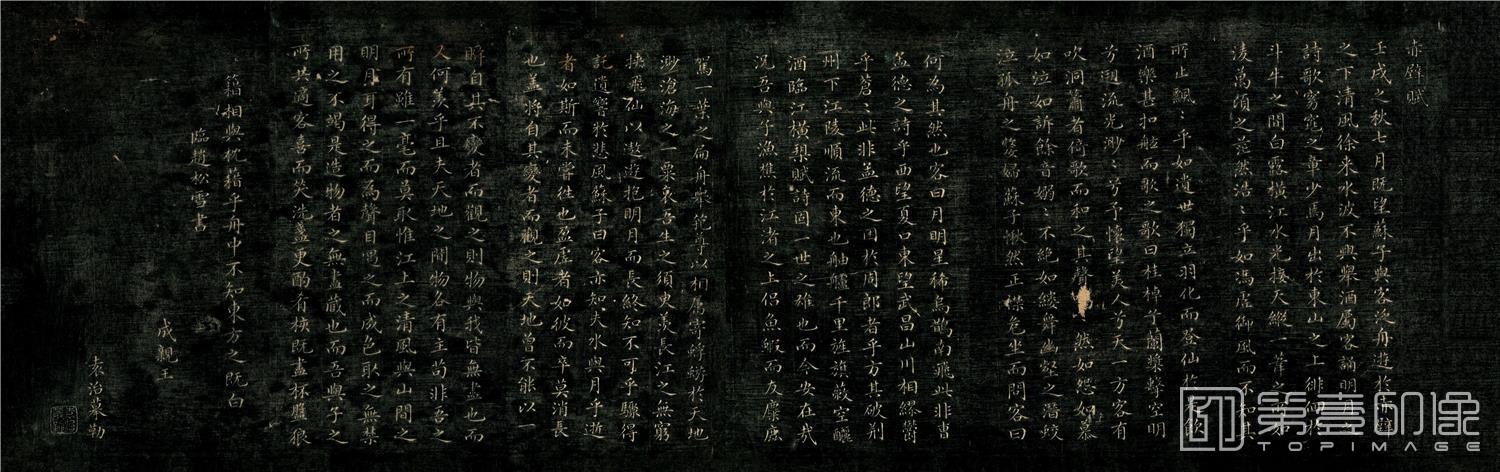 赤壁賦
壬戌之秋七月既望蘇子與客泛舟遊於赤壁
之下清風徐来水波不興舉酒屬客誦明月之
詩歌窈窕之章少焉月出於東山之上徘徊於
斗牛之間白露橫江水光接天縱一葦之所如
淩萬頃之茫然浩〻乎如馮虛御風而不知其
所止飄〻乎如遺世獨立羽化而登仙於是飲
酒樂甚扣舷而歌之歌曰桂棹兮蘭槳擊空明
兮遡流光渺〻兮予懷望美人兮天一方客有
吹洞簫者倚歌而和之其聲然如怨如慕
如泣如訴餘音嫋〻不絕如縷舞幽壑之潛蛟
泣孤舟之嫠婦蘇子愀然正襟危坐而問客曰
何為其然也客曰月明星稀烏鵲南飛此非曹
孟德之詩乎西望夏口東望武昌山川相繆鬱
乎蒼〻此非孟德之困於周郎者乎方其破荊
州下江陵順流而東也舳艫千里旌旗蔽空釃
酒臨江橫槊賦詩固一世之雄也而今安在哉
況吾與子漁樵於江渚之上侶魚蝦而友麋鹿
駕一葉之扁舟舉匏尊以相屬寄蜉蝣於天地
渺滄海之一粟哀吾生之須臾羨長江之無窮
挾飛仙以遨遊抱明月而長終知不可乎驟得
託遺響於悲風蘇子曰客亦知夫水與月乎逝
者如斯而未嘗往也盈虛者如彼而卒莫消長
也蓋將自其變者而觀之則天地曾不能以一
瞬自其不變者而觀之則物與我皆無盡也而
又何羨乎且夫天地之間物各有主苟非吾之
所有雖一毫而莫取惟江上之清風與山間之
明月耳得之而為聲目遇之而成色取之無禁
用之不竭是造物者之無盡藏也而吾與子之
所共適客喜而笑洗盞更酌肴核既盡杯盤狼
籍相與枕藉乎舟中不知東方之既白
臨趙松雪書
成親王
袁治摹勒
第壹印像
TOPIMAGE